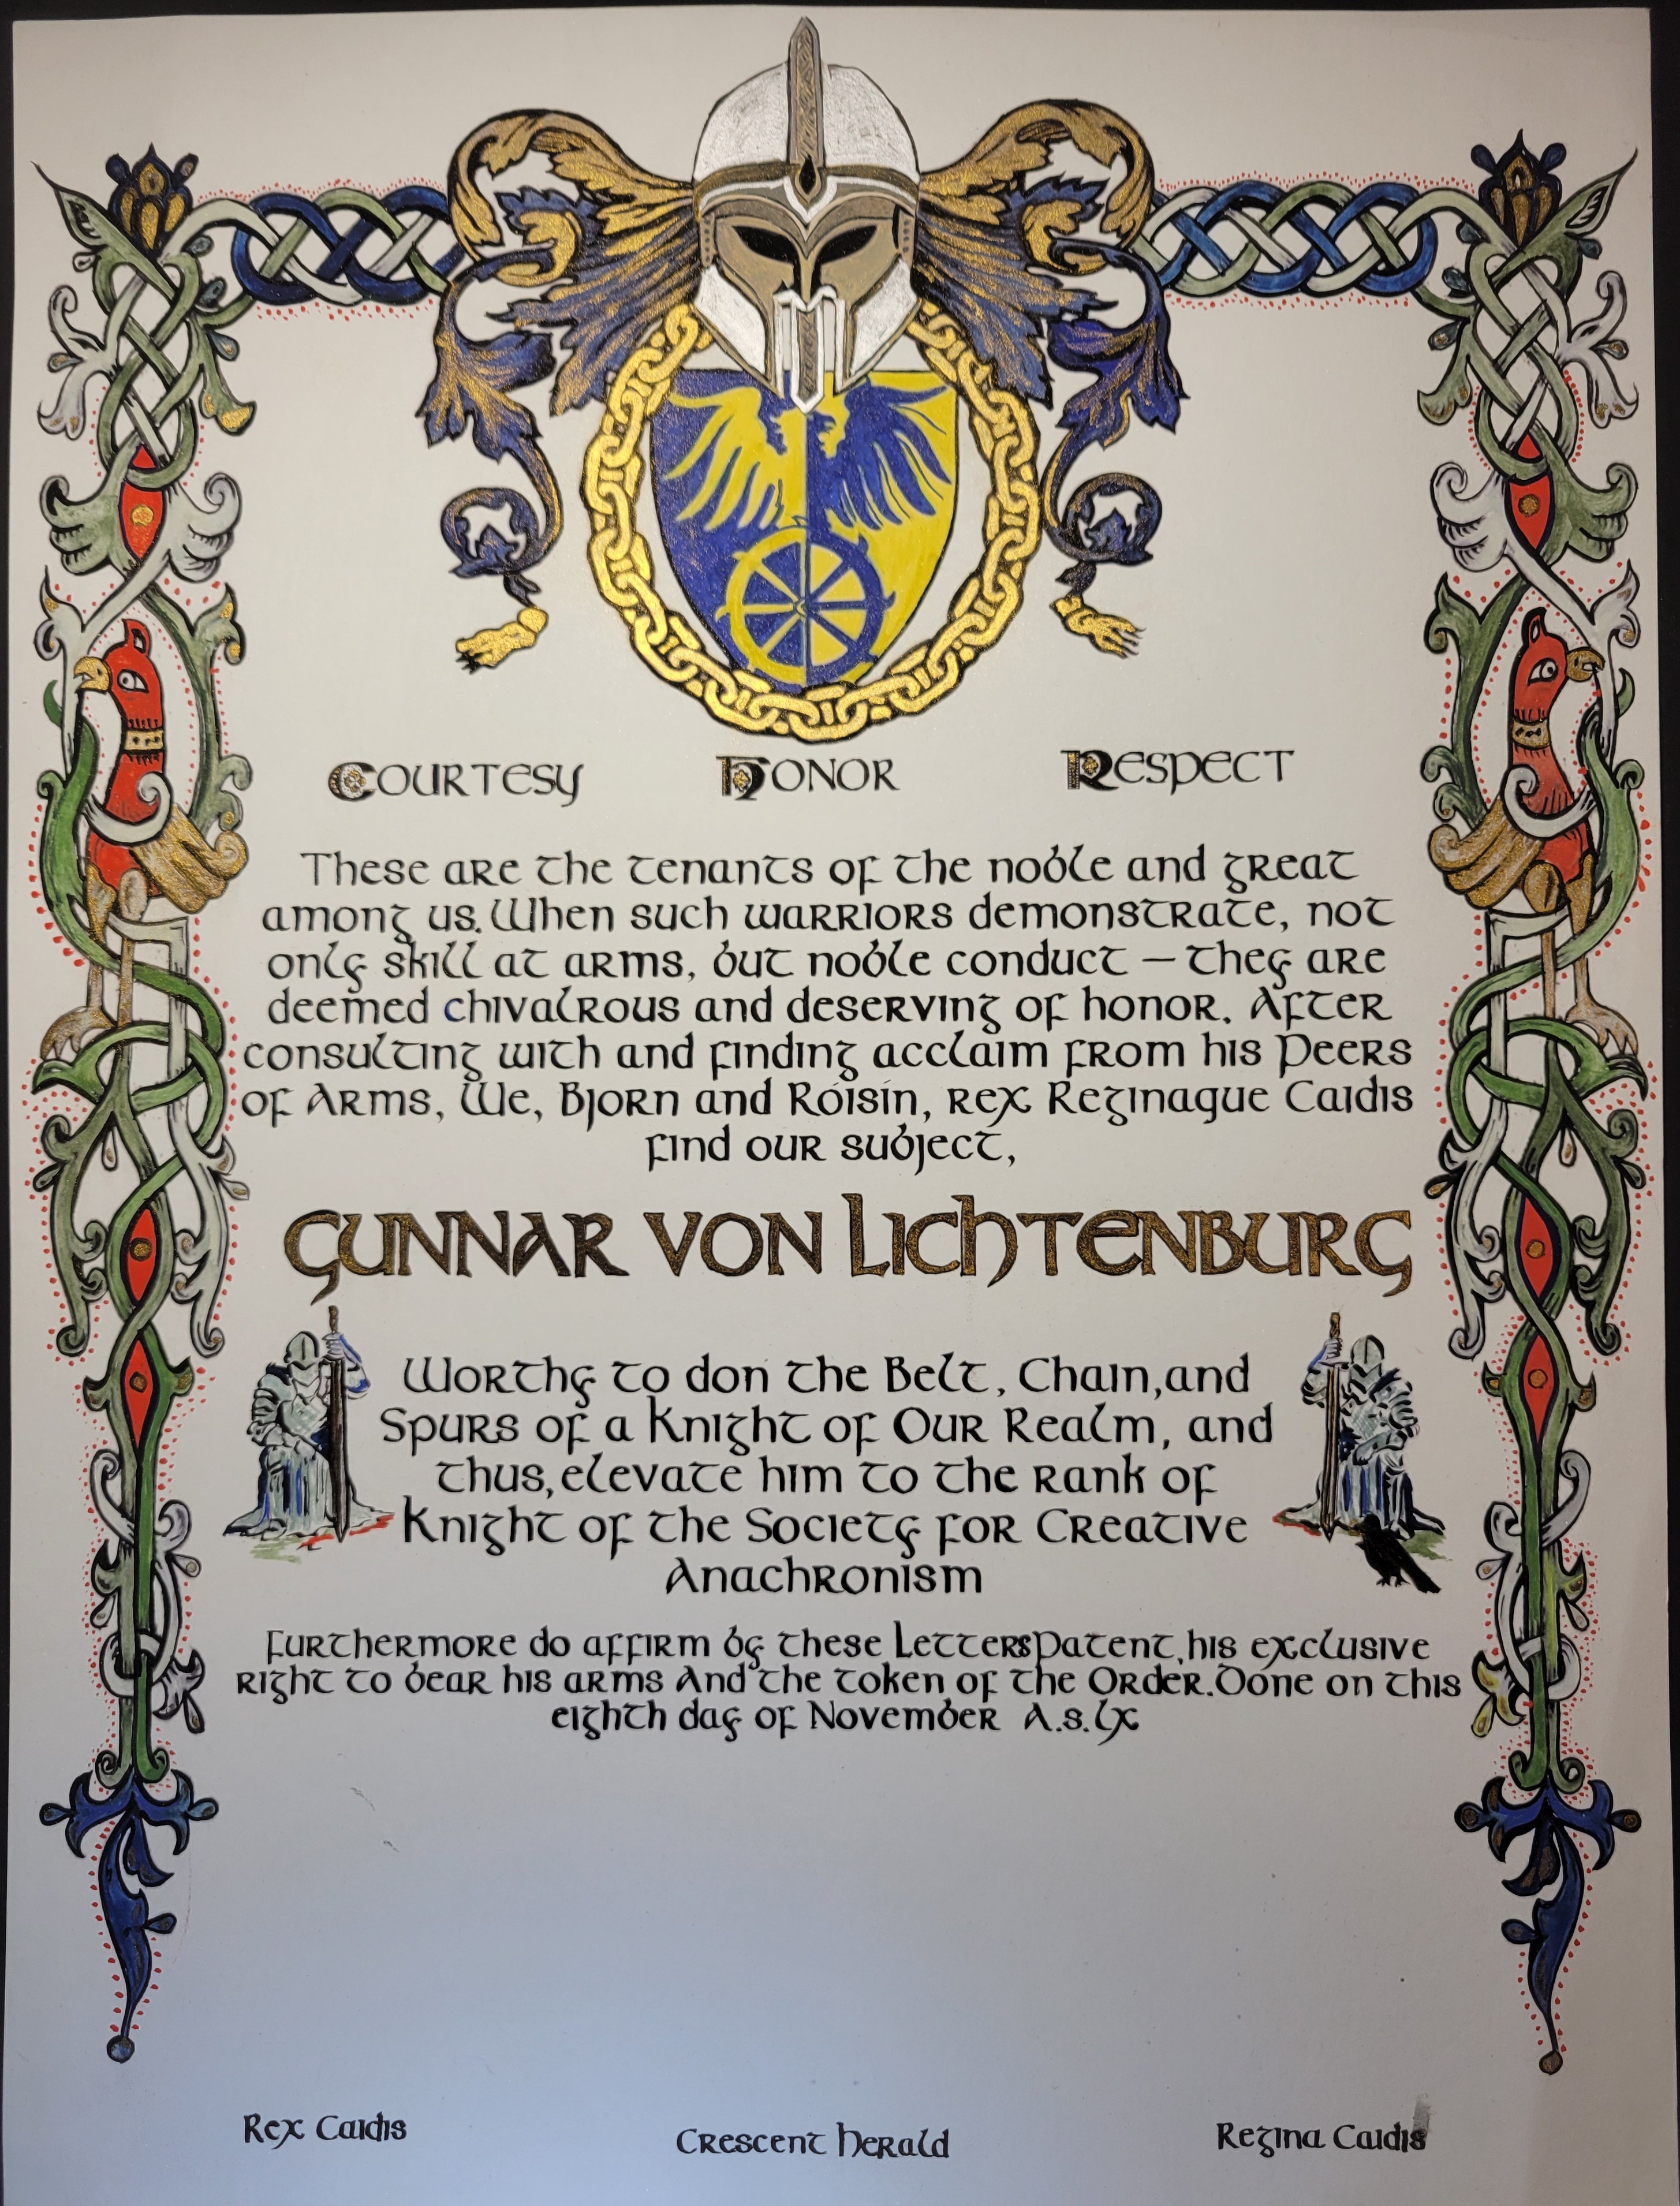 Courtesy Honor Respect
These are the tenants of the noble and great
among us. When such warriors demonstrate, not
only skill at arms, but noble conduct — they are
deemed chivalrous and deserving of honor. After
consulting with and finding acclaim from his Peers
of Arms, We, Bjorn and Róisín, rex Reginaque Caidis
find our subject,
Gunnar von Lichtenburg
Worthy to don the Belt, Chain, and
Spurs of a Knight of Our Realm, and
thus, elevate him to the rank of
Knight of the Society for Creative
Anachronism
Furthermore do affirm by these Letters Patent, his exclusive
right to bear his arms And the token of the Order. Done on this
eighth day of November A.S. lx
Rex Caidis
Crescent Herald
Regina Caidis